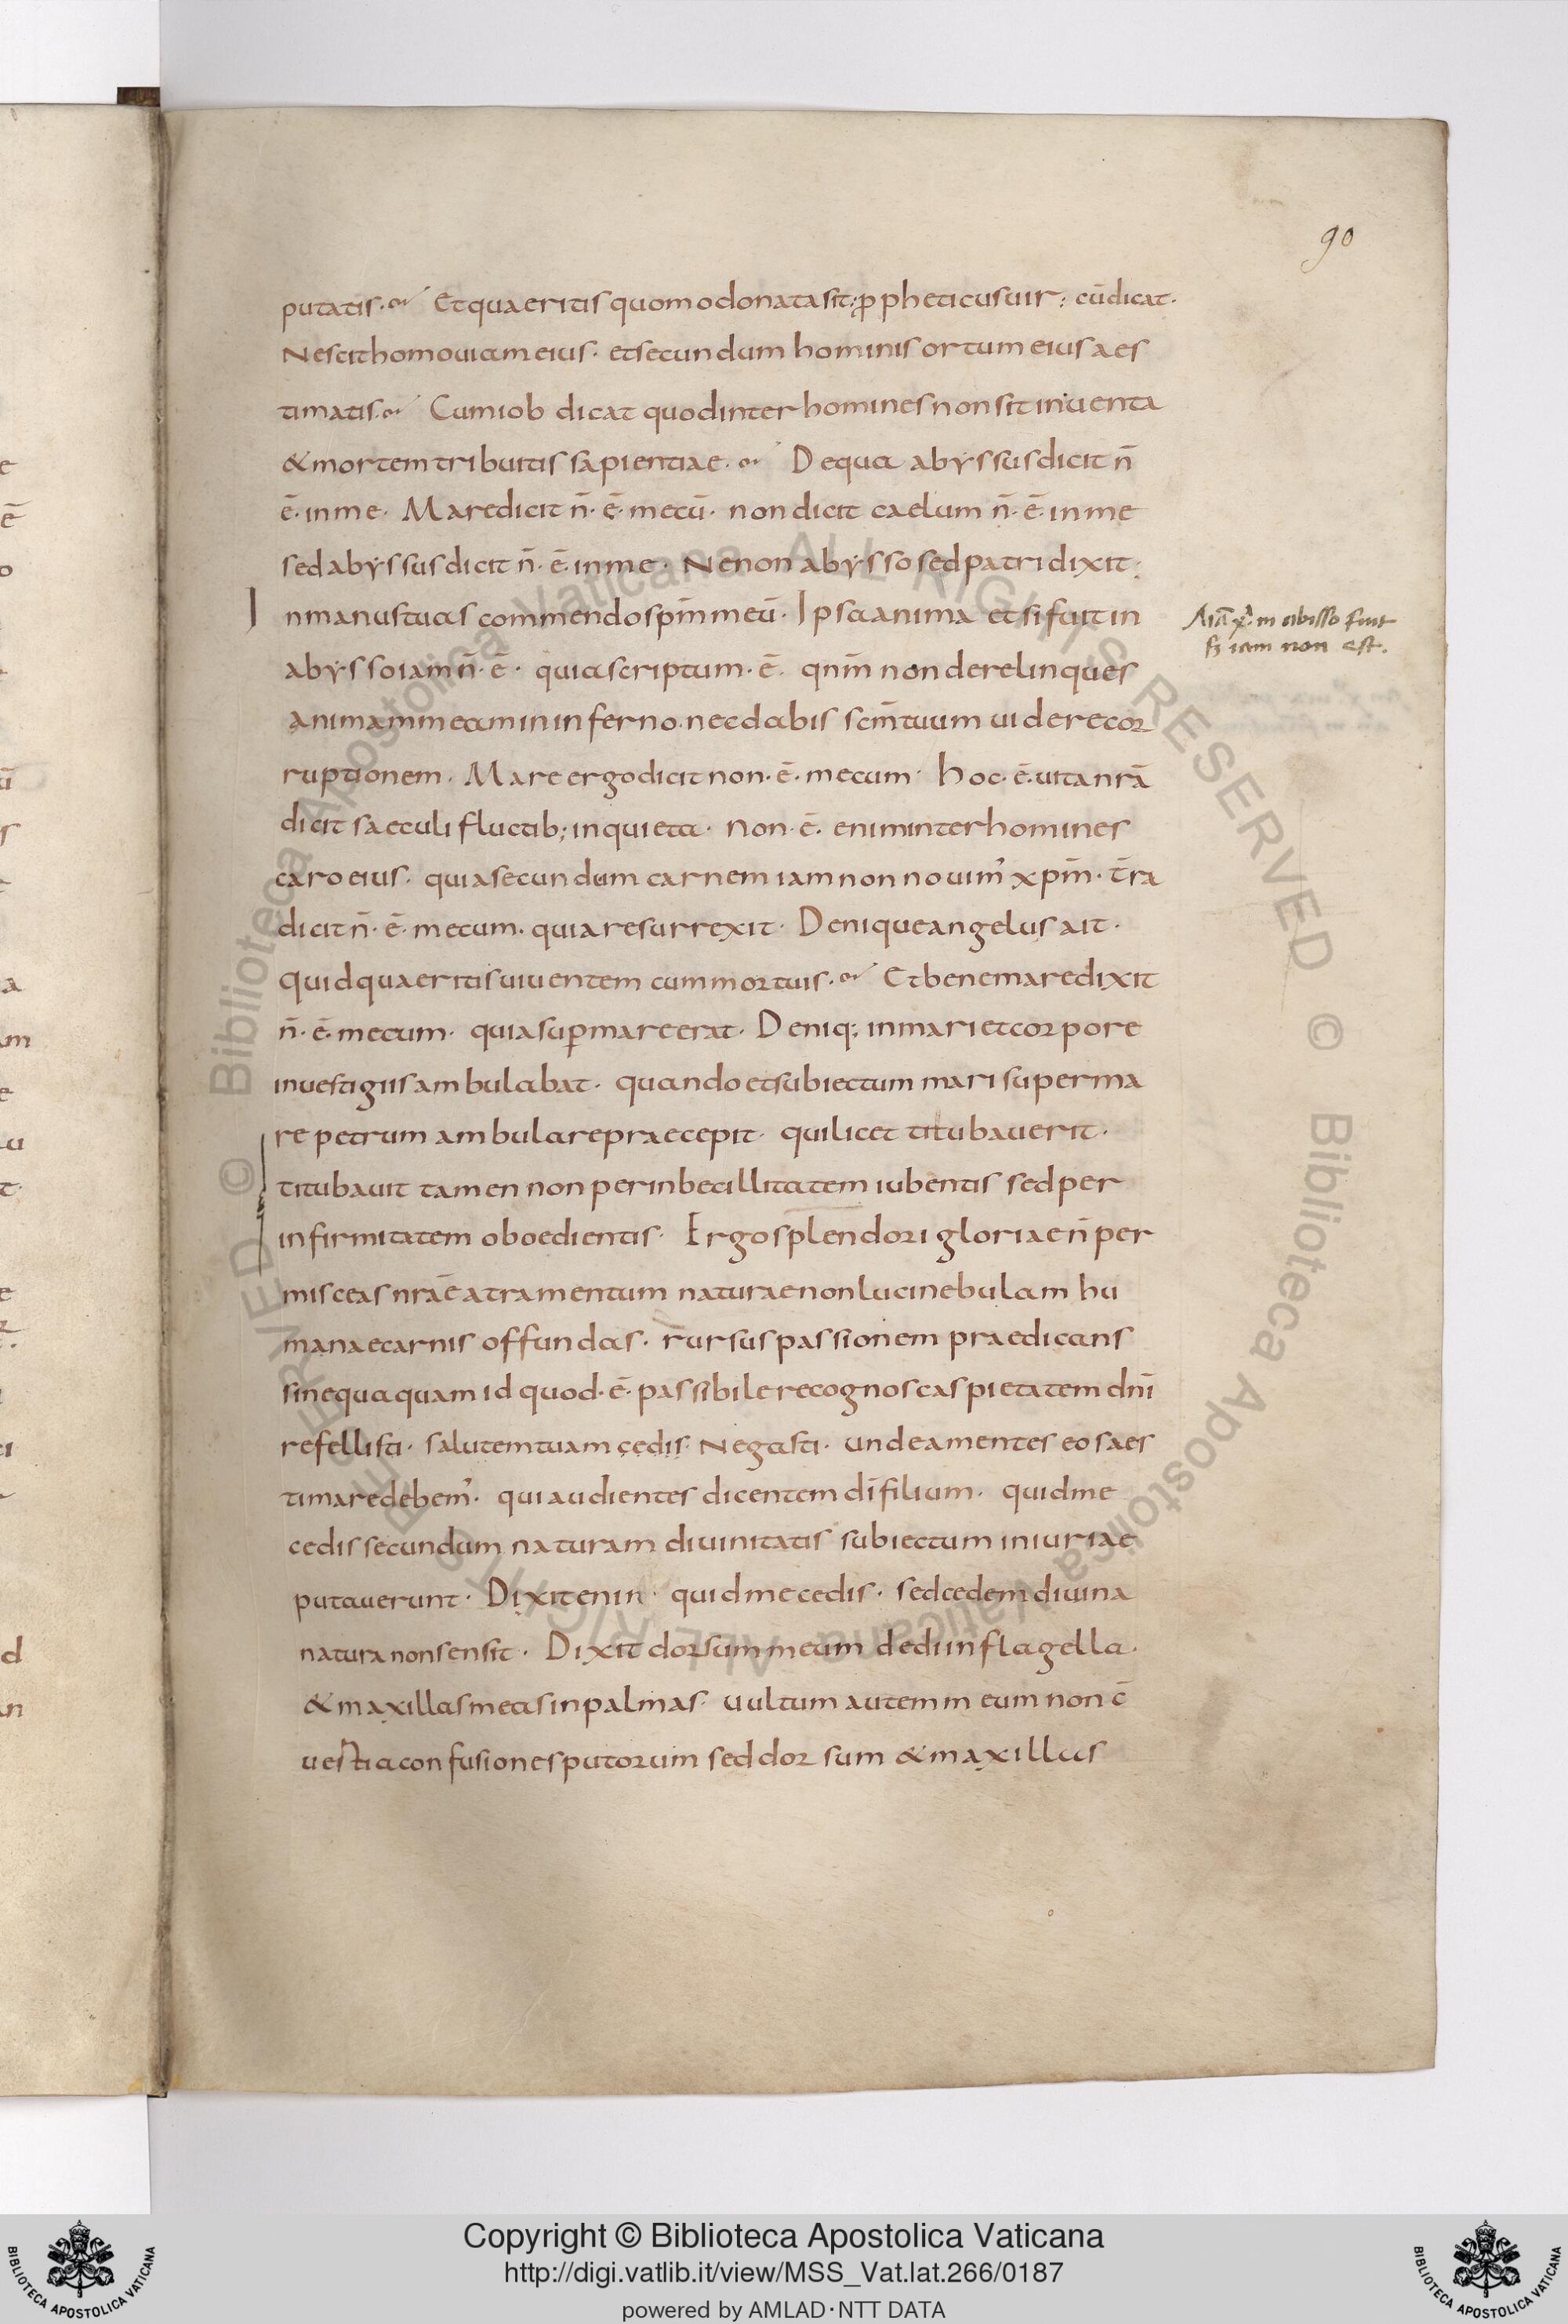 90
putatis. Et quaeritis quomodo nata sit; ꝓpheticus uir; cū dicat.
Nescit homo uiam eius. et secundum hominis ortum eius aes
timatis. Cum iob dicat quod inter homines non sit inuenta
& mortem tribuitis sapientiae. De qua abyssus dicit n̄
ē. in me. Mare dicit n̄. ē. mecū. non dicit caelum n̄. ē. in me
sed abyssus dicit n̄. ē. in me. Ne non abysso sed patri dixit;
In manus tuas commendo spm̄ meū. Ipsa anima et si fuit in
abysso iam n̄. ē. quia scriptum. ē. qnm̄ non derelinques
animam meam in inferno. nec dabis scm̄ tuum uidere cor
ruptionem. Mare ergo dicit non. ē. mecum. hoc. ē. uita nrā
dicit saeculi fluctib; inquieta. Non. ē. enim inter homines
caro eius. quia secundum carnem iam non nouim' xpm̄. t̄ra
dicit n̄. ē. mecum. quia resurrexit. Denique angelus ait.
Quid quaeritis uiuentem cum mortuis. Et bene mare dixit
n̄. ē. mecum. quia suꝑ mare erat. Deniq; in mari et corpore
in uestigiis ambulabat. quando et subiectum mari super ma
re petrum ambulare praecepit. qui licet titubauerit.
titubauit tamen non per inbecillitatem iubentis sed per
infirmitatem oboedientis. Ergo splendori gloriae n̄ per
misceas nrāe atramentum naturae non luci nebulam hu
manae carnis offundas. rursus passionem praedicans
si nequaquam id quod. ē. passibile recognoscas pietatem dnī
refellisti. salutem tuam cedis. Negasti. unde amentes eos aes
timare debem'. qui audientes dicentem dī filium. quid me
cedis secundum naturam diuinitatis subiectum iniuriae
putauerunt. Dixit enin. quid me cedis. sed cedem diuina
natura non sensit. Dixit dorsum meum dedi in flagella.
& maxillas meas in palmas. uultum autem meum non c̄
uesti a confusione sputorum sed dorsum & maxillas
Aīa xp̄i in abisso fuit
s; iam non est.
© Biblioteca Apostolica Vaticana ALL RIGHTS RESERVED © Biblioteca Apostolica Vaticana ALL RIGHTS RESERVED
Copyright © Biblioteca Apostolica Vaticana
http://digi.vatlib.it/view/MSS_Vat.lat.266/0187
powered by AMLAD·NTT DATA
BIBLIOTECA APOSTOLICA VATICANA
BIBLIOTECA APOSTOLICA VATICANA